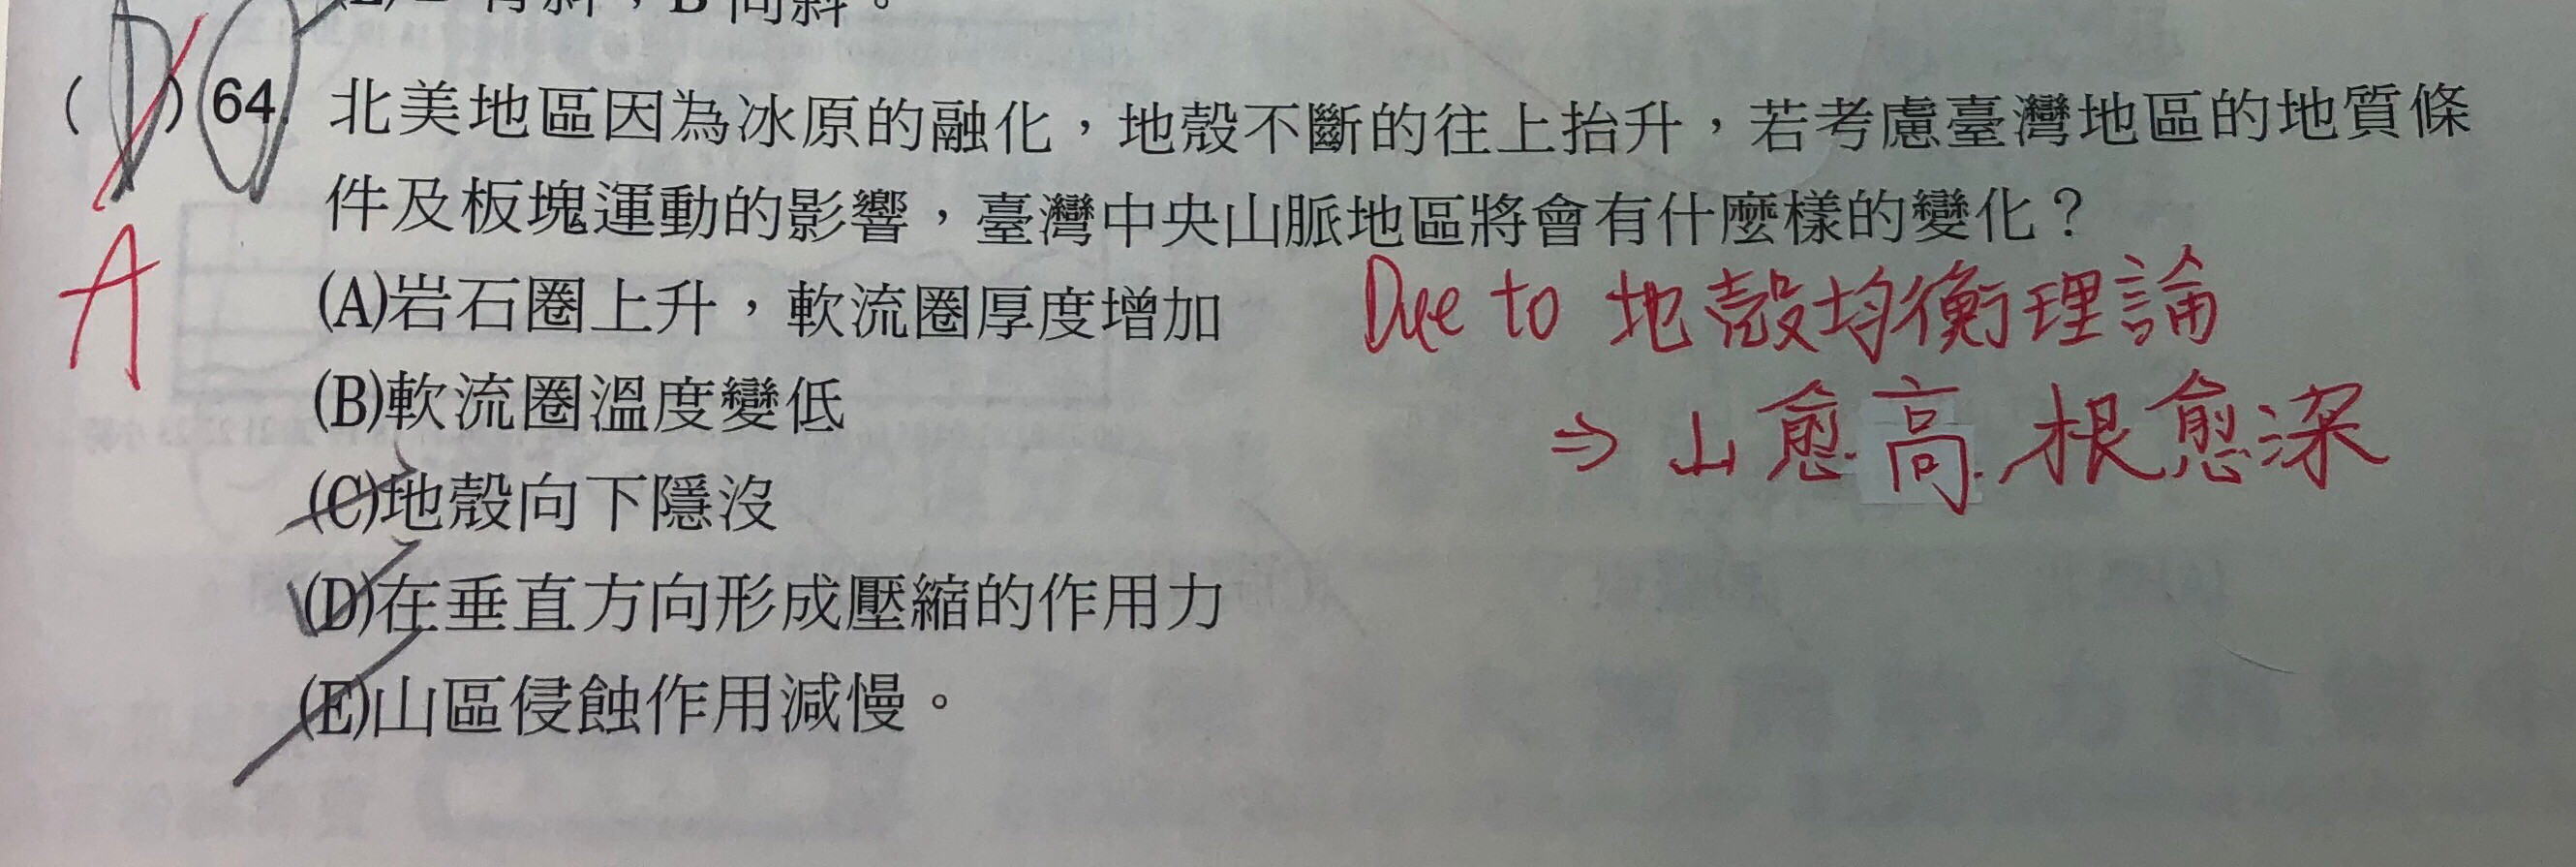 (E)　背斜，B 向斜。
( D ) 64. 北美地區因為冰原的融化，地殼不斷的往上抬升，若考慮臺灣地區的地質條
件及板塊運動的影響，臺灣中央山脈地區將會有什麼樣的變化？
A
(A)岩石圈上升，軟流圈厚度增加
Due to 地殼均衡理論
(B)軟流圈溫度變低
⇒ 山愈高.根愈深
(C)地殼向下隱沒
(D)在垂直方向形成壓縮的作用力
(E)山區侵蝕作用減慢。